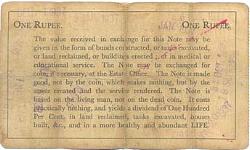 ONE RUPEE. JAN ONE RUPEE.
The value received in exchange for this Note may be
given in the form of bunds constructed, or tanks excavated,
or land reclaimed, or buildings erected, or in medical or
educational service. The Note may be exchanged for
coin, if necessary, at the Estate Office. The Note is made
good, not by the coin, which makes nothing, but by the
assets created and the service rendered. The Note is
based on the living man, not on the dead coin. It costs
practically nothing, and yields a dividend of One Hundred
Per Cent. in land reclaimed, tanks excavated, houses
built, &c., and in a more healthy and abundant LIFE.